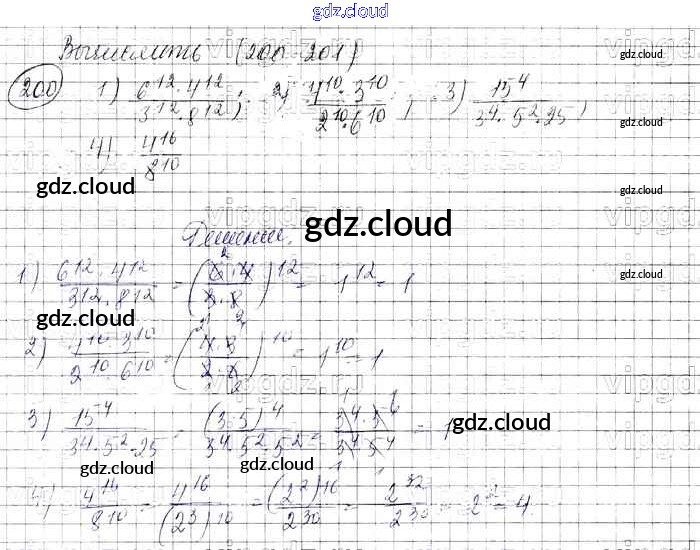 gdz.cloud
Вычислить (200-201)
gdz.cloud
200 1) 6^12·4^12 / 3^12·8^12; 2) 4^10·3^10 / 2^10·6^10; 3) 15^4 / 3^4·5^2·25;
gdz.cloud
4) 4^16 / 8^10
gdz.cloud gdz.cloud
Решение. gdz.cloud
1) 6^12·4^12 / 3^12·8^12 = (6·4 / 3·8)^12 = 1^12 = 1
gdz.cloud
gdz.cloud
2) 4^10·3^10 / 2^10·6^10 = (4·3 / 2·6)^10 = 1^10 = 1
gdz.cloud
3) 15^4 / 3^4·5^2·25 = (3·5)^4 / 3^4·5^2·5^2 = / 3^4·5^4 = 1
gdz.cloud
gdz.cloud gdz.cloud
4) / 8^10 = 4^16 / (2^3)^10 = (2^2)^16 / 2^30 = 2^32 / 2^30 = 2^2 = 4.
gdz.cloud gdz.cloud